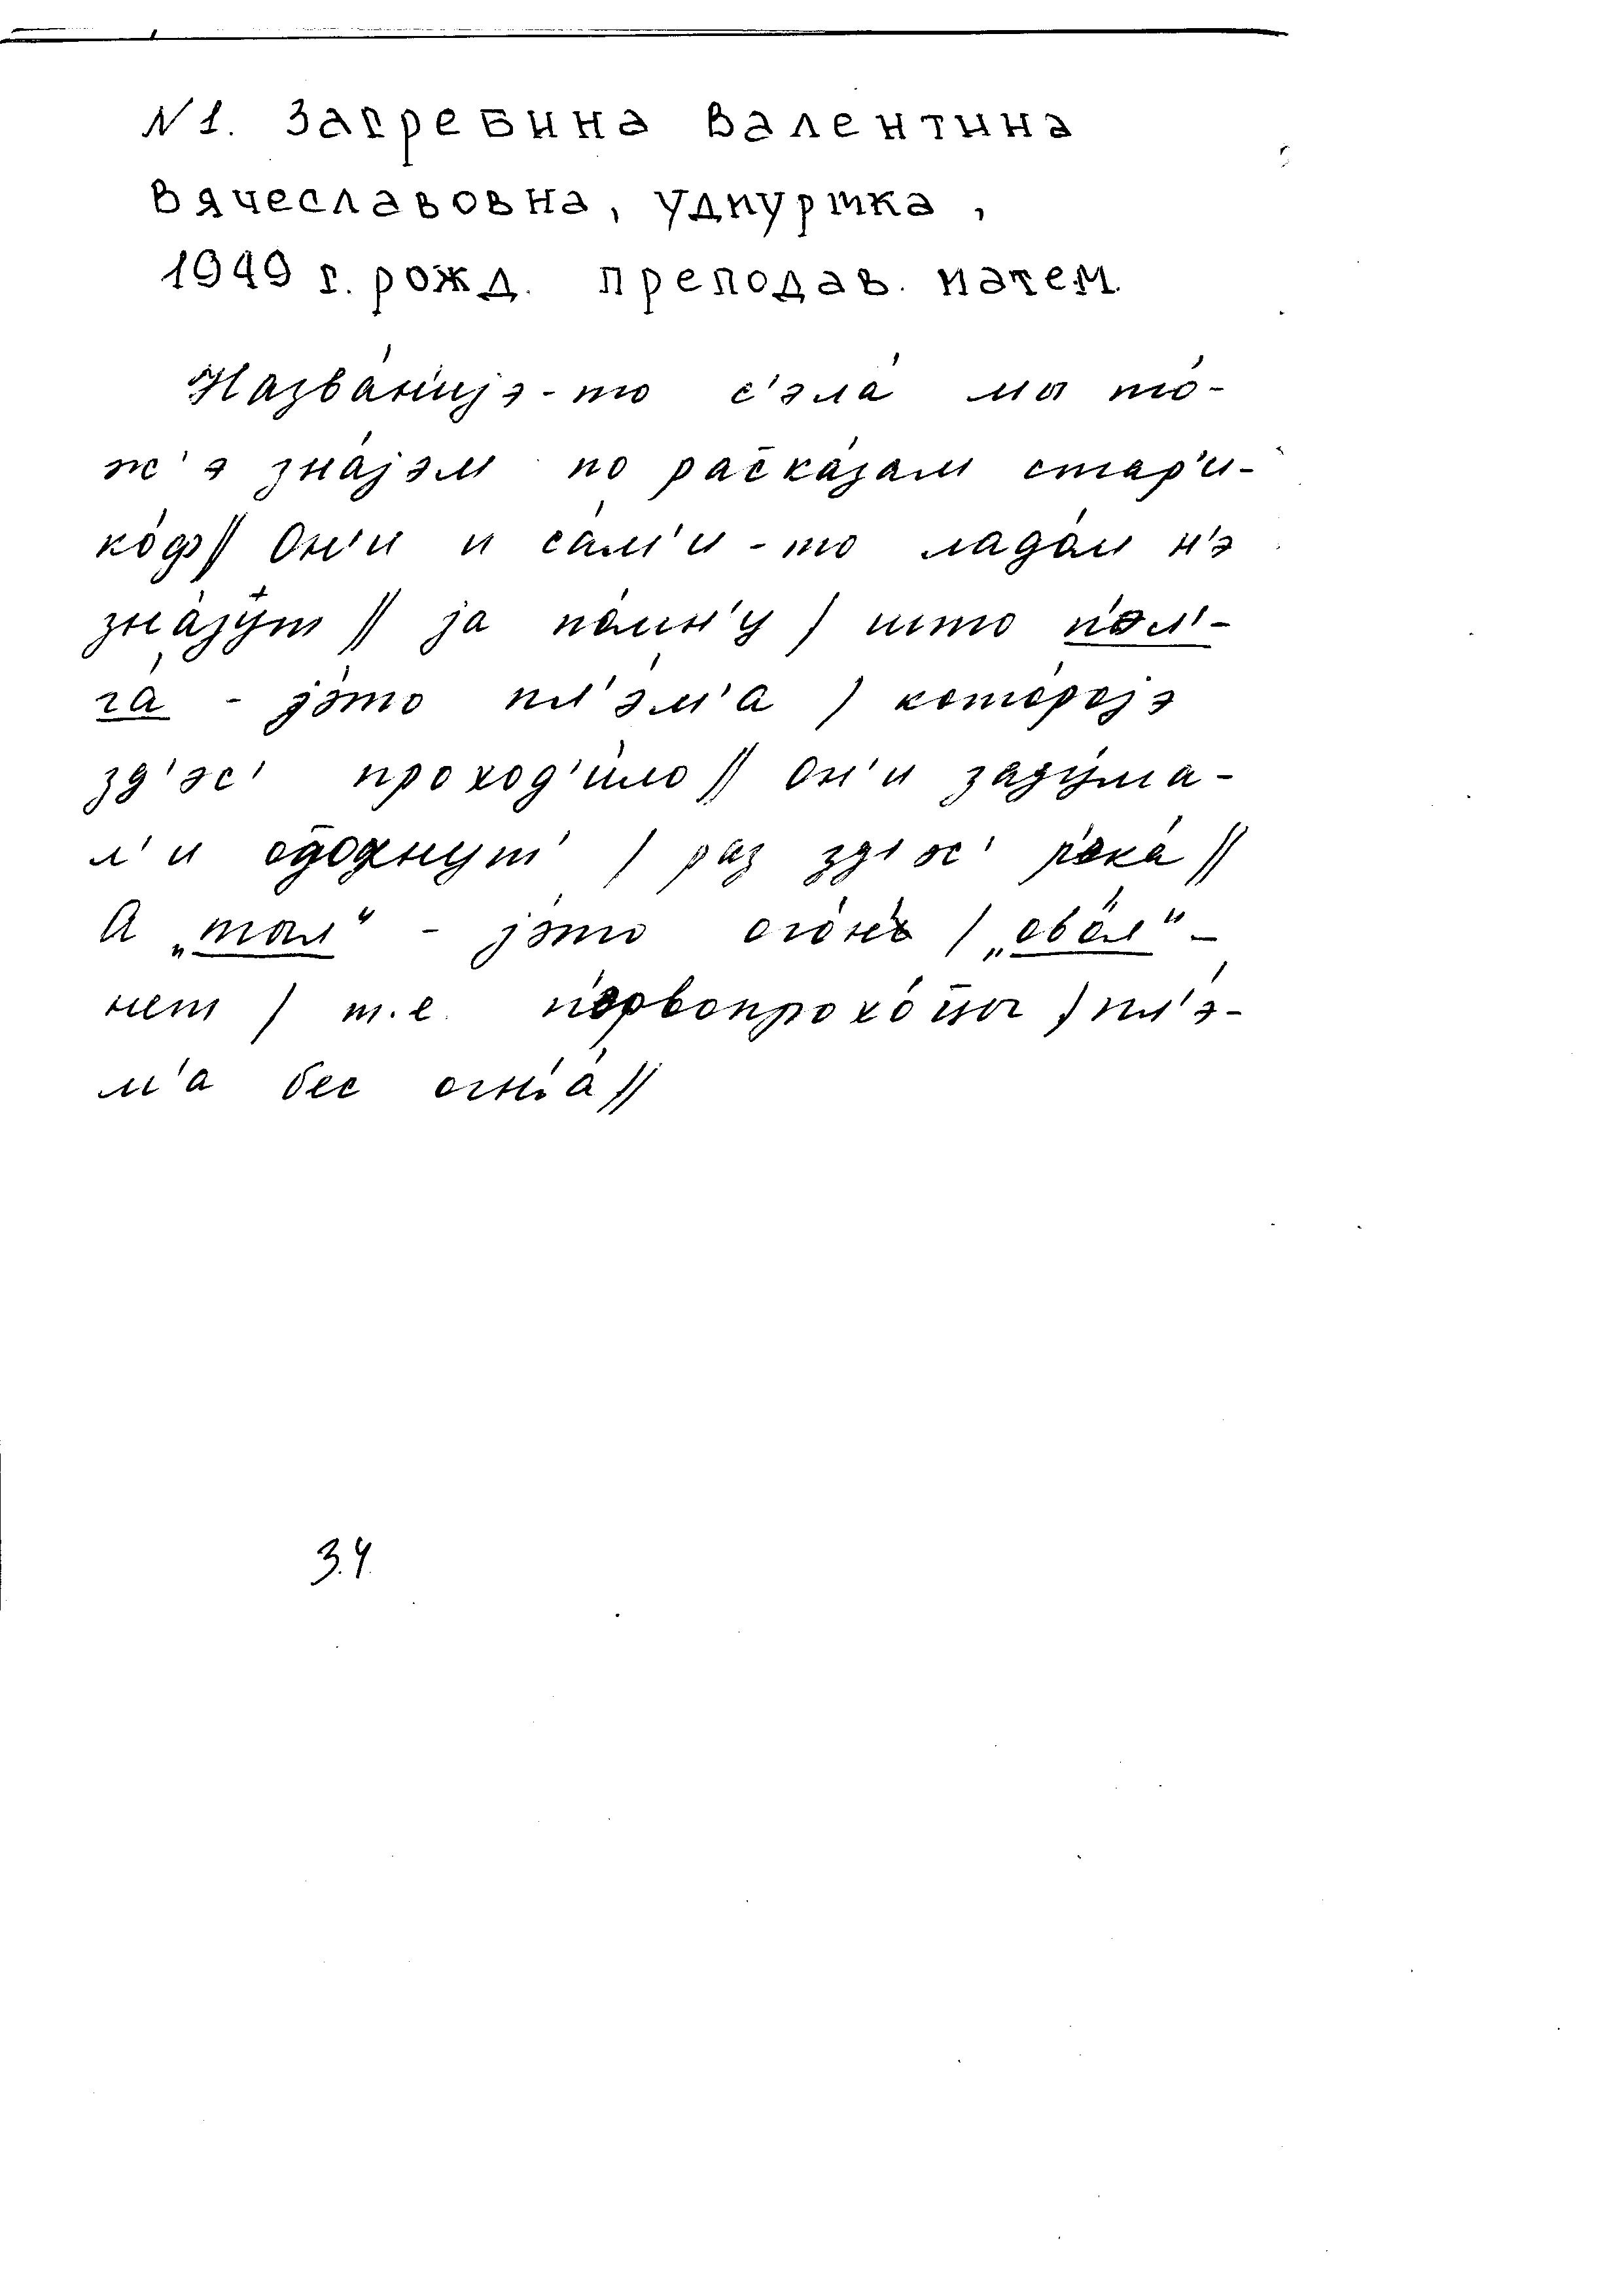 N 1. Загребина Валентина
Вячеславовна, удмуртка,
1949 г. рожд. преподав. матем.
Назва́н'ијэ-то с'эла́ мы то́-
ж'э зна́јэм по расказам стар'и-
ко́ф// Он'и и са́м'и-то ладом н'э
зна́јут // ја по́мн'у / што п'ол'-
га́ - јэ́то пл'э́м'а / кото́ројэ
зд'эс' проход'и́ло // Он'и заду́ма-
л'и отдохнут' / раз зд'эс' р'эка́ //
А „тыл" - јэ́то ого́н' / „ово́л" -
нет / т.е. п'эрвопрохо́цы / пл'э́-
м'а бес огн'а́ //
3.4.